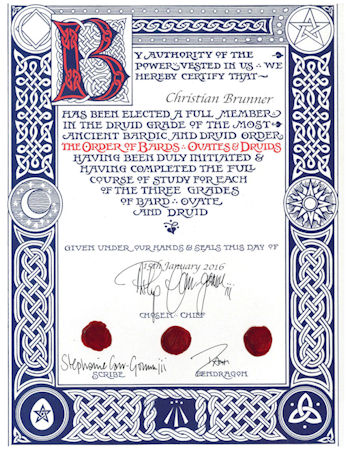 BY AUTHORITY OF THE
POWER VESTED IN US ∴ WE
HEREBY CERTIFY THAT ~
Christian Brunner
HAS BEEN ELECTED A FULL MEMBER
IN THE DRUID GRADE OF THE MOST
ANCIENT BARDIC AND DRUID ORDER,
THE ORDER OF BARDS ∴ OVATES & DRUIDS
HAVING BEEN DULY INITIATED &
HAVING COMPLETED THE FULL
COURSE OF STUDY FOR EACH
OF THE THREE GRADES
OF BARD ∴ OVATE
AND DRUID
GIVEN UNDER OUR HANDS & SEALS THIS DAY OF
15th January 2016
Philip Carr-Gomm
CHOSEN ∴ CHIEF
Stephanie Carr-Gomm
SCRIBE
PENDRAGON